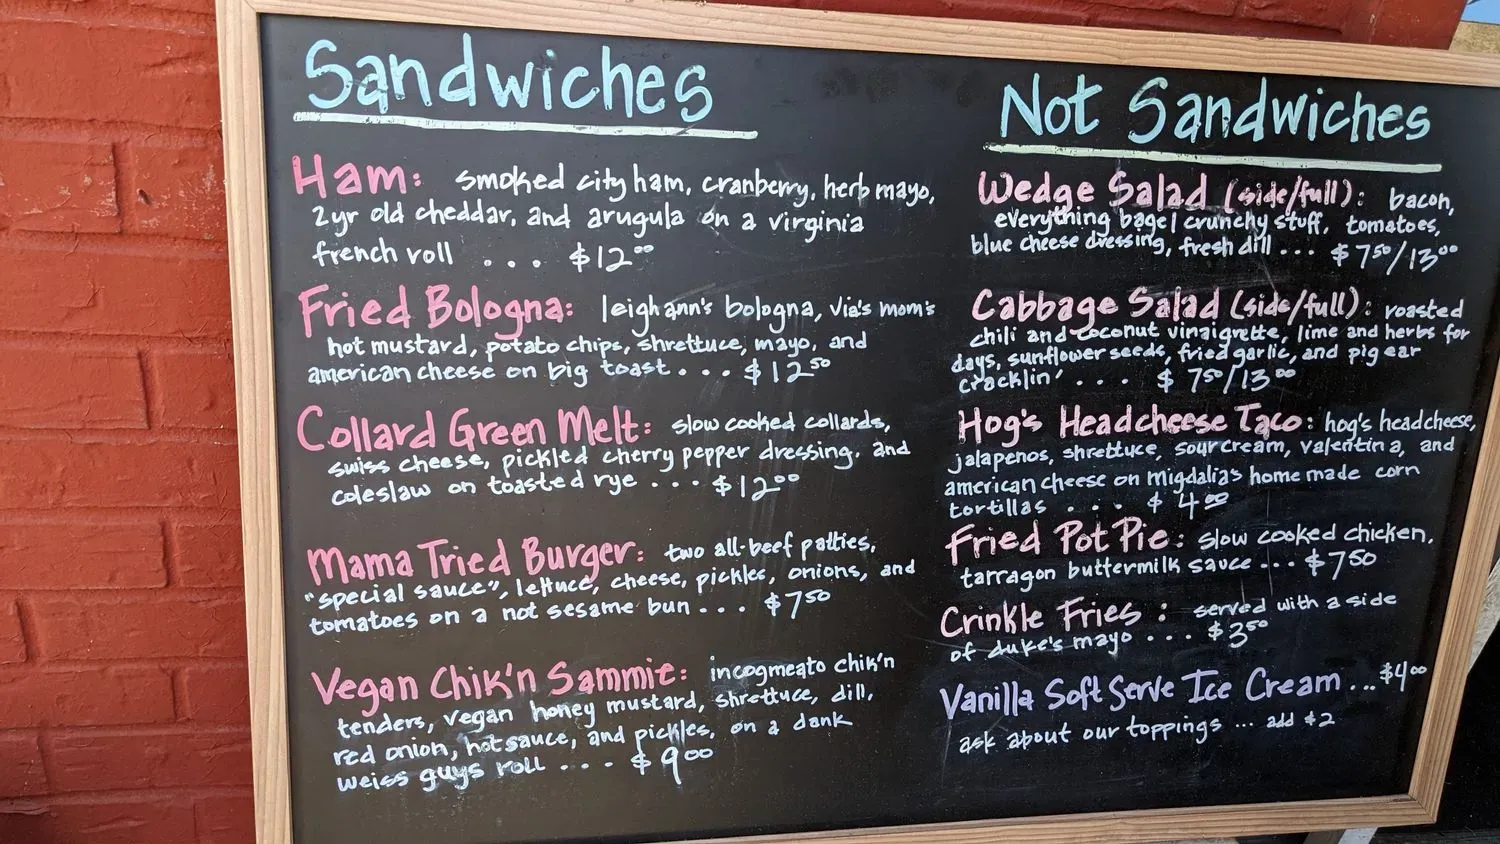 Sandwiches
Ham: smoked city ham, cranberry, herb mayo,
2yr old cheddar, and arugula on a virginia
french roll ... $12.00
Fried Bologna: leighann's bologna, via's mom's
hot mustard, potato chips, shrettuce, mayo, and
american cheese on big toast... $12.50
Collard Green Melt: slow cooked collards,
swiss cheese, pickled cherry pepper dressing, and
coleslaw on toasted rye ... $12.00
Mama Tried Burger: two all-beef patties,
"special sauce", lettuce, cheese, pickles, onions, and
tomatoes on a not sesame bun ... $7.50
Vegan Chik'n Sammie: incogmeato chik'n
tenders, vegan honey mustard, shrettuce, dill,
red onion, hot sauce, and pickles, on a dank
weiss guys roll .... $9.00
Not Sandwiches
Wedge Salad (side/full): bacon,
everything bagel crunchy stuff, tomatoes,
blue cheese dressing, fresh dill ... $7.50/13.00
Cabbage Salad (side/full): roasted
chili and coconut vinaigrette, lime and herbs for
days, sunflower seeds, fried garlic, and pig ear
cracklin' ... $7.50/13.00
Hog's Headcheese Taco: hog's headcheese,
jalapenos, shrettuce, sour cream, valentina, and
american cheese on migdalia's homemade corn
tortillas ... $4.00
Fried Pot Pie: slow cooked chicken,
tarragon buttermilk sauce ... $7.50
Crinkle Fries : served with a side
of duke's mayo ... $3.50
Vanilla Soft Serve Ice Cream ... $4.00
ask about our toppings ... add $2